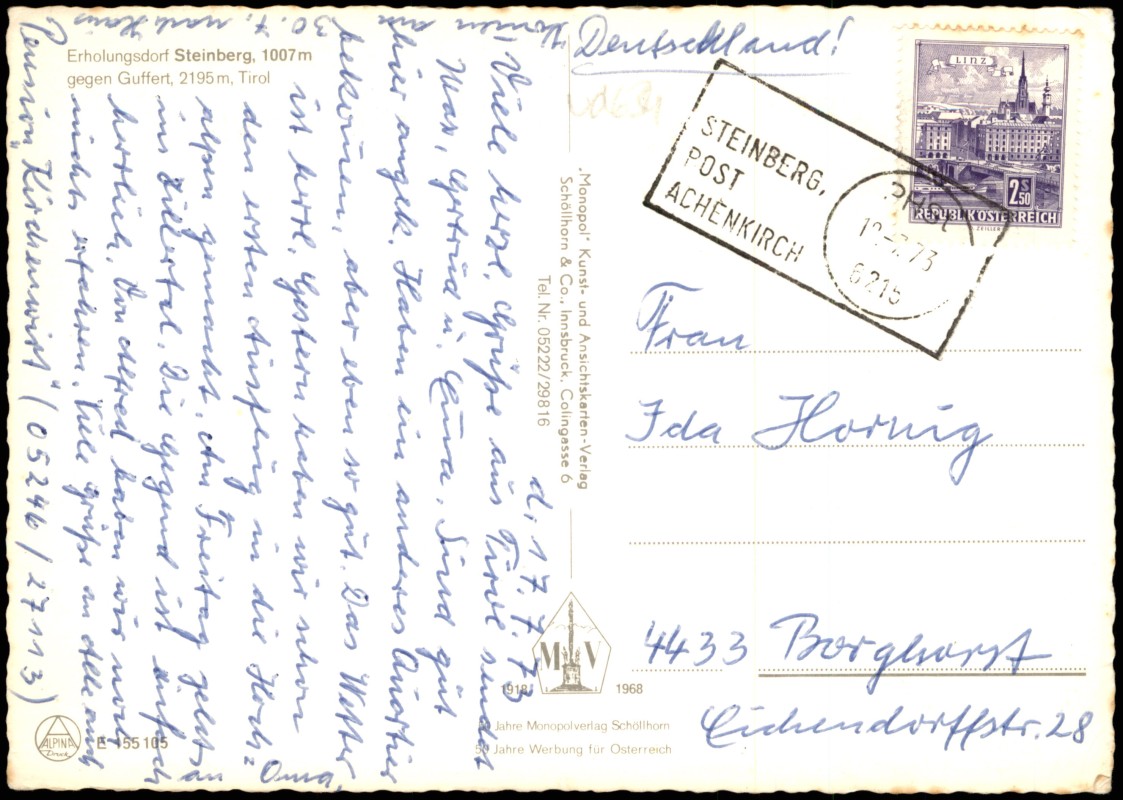 Erholungsdorf Steinberg, 1007m
gegen Guffert, 2195m, Tirol
d. 17.7.73
Viele herzl. Grüße aus Tirol sendet
Max, Gertrud u. Sind gut
hier angek. Haben ein anderes Quartier
bekommen, aber eben so gut. Das Wetter
ist herrl. Gestern haben wir schon
den ersten Ausflug in die Hoch=
alpen gemacht. Am Freitag geht es
ins Zillertal. Die Gegend ist einfach
herrlich. Von Alfred haben wir noch
nichts erfahren. Viele Grüße an alle auch
Pension „Kirchenwirt" (05246/27113)
an Oma,
Kommen am
30. 7. nach Haus
„Monopol" Kunst- und Ansichtskarten-Verlag
Schöllhorn & Co., Innsbruck, Colingasse 6
Tel. Nr. 05222/29816
M V
1918 1968
50 Jahre Monopolverlag Schöllhorn
50 Jahre Werbung für Österreich
ALPINA
Druck
E 155105
Deutschland!
LINZ
2 S 50
REPUBLIK ÖSTERREICH
STEINBERG,
POST
ACHENKIRCH
73
6215
Frau
Ida Hornig
4433 Borghorst
Eichendorffstr. 28